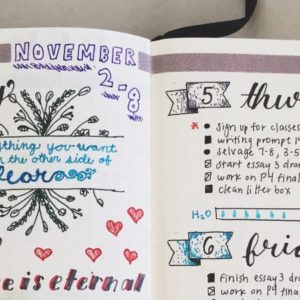 NOVEMBER
2-8
you want
the other side of
fear
is eternal
5 thur
Sign up for classes
writing prompt
selvage 7-8, 3-5
start essay 3
work on P4
clean litter box
H2O
6 frid
finish essay 3
work on P4 final